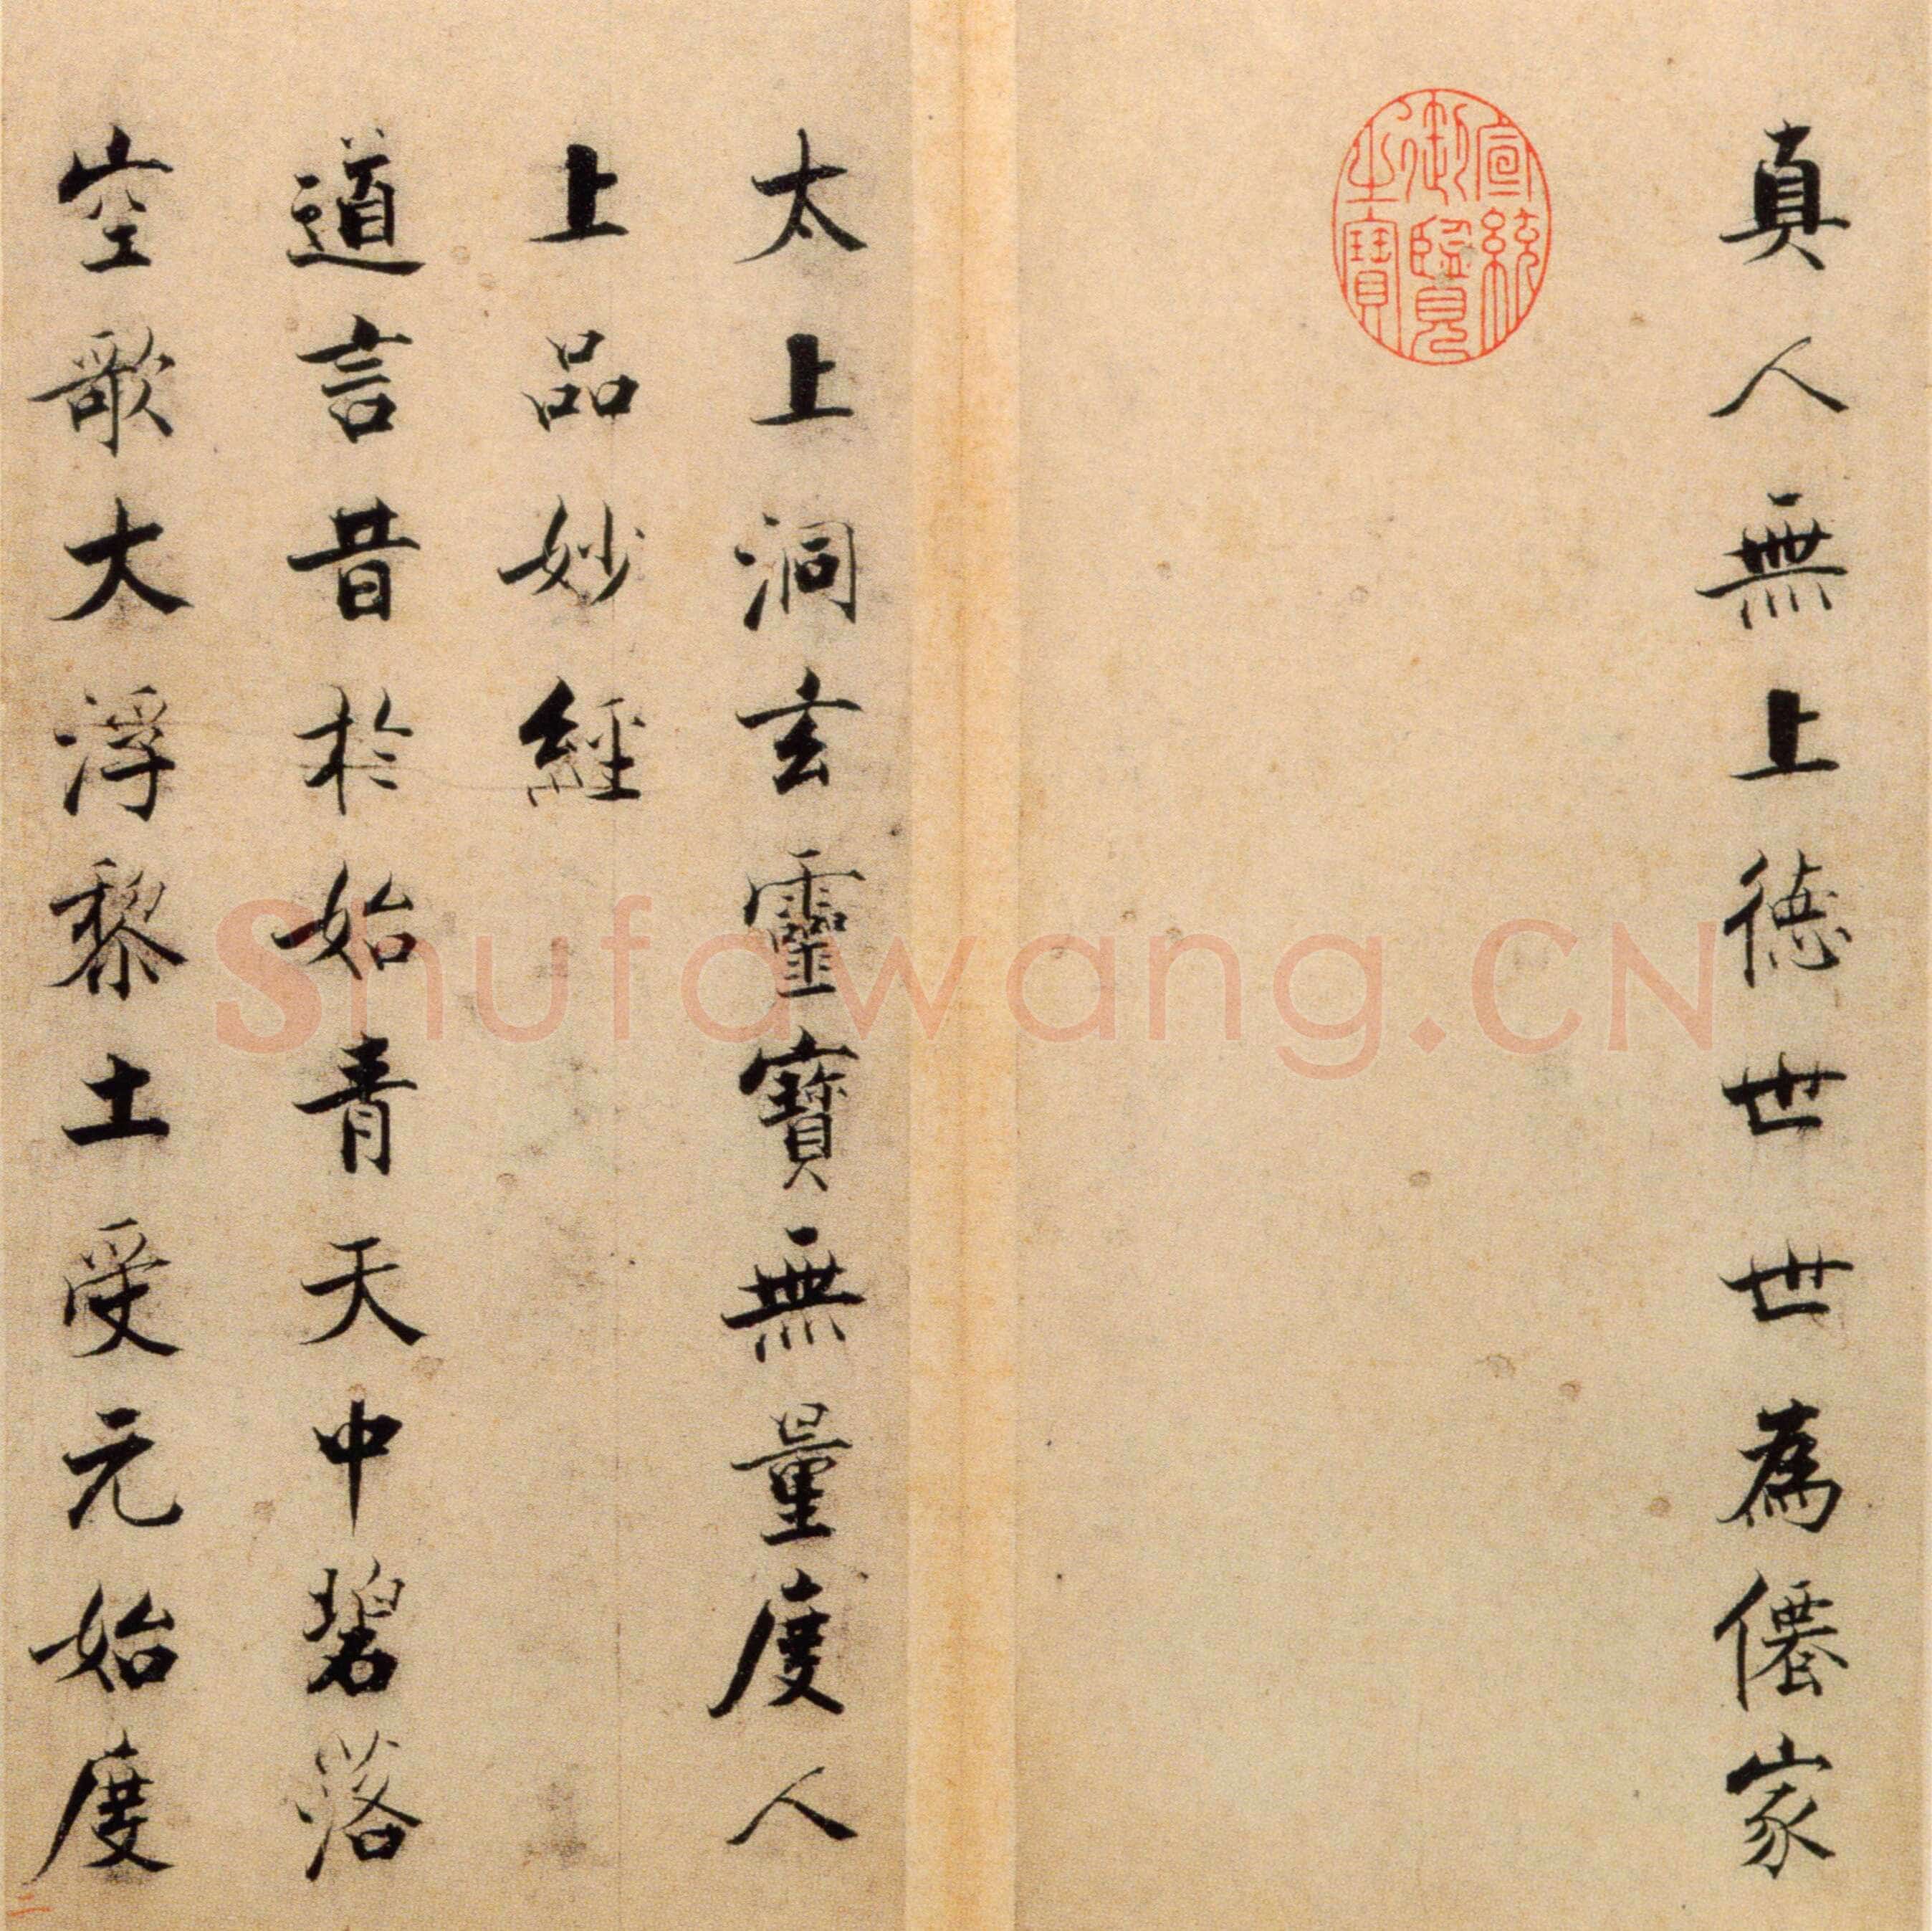 真人無上德世世為僊家
宣統
御覽
之寶
太上洞玄靈寶無量度人
上品妙經
道言昔於始青天中碧落
空歌大浮黎土受元始度
二
Shufawang.CN